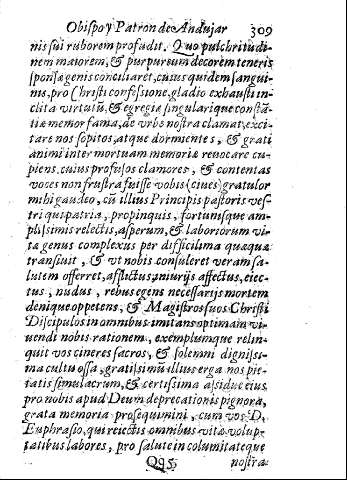 Obispo y Patron de Andujar 309
nis sui ruborem profudit. Quo pulchritudi-
nem maiorem, & purpureum decorem teneris
sponsæ genis conciliaret, cuius quidem sangui-
nis, pro Christi confessione, gladio exhausti in-
clita virtutū, & egregia singularique constā-
tiæ memor fama, de vrbe nostra clamat, exci-
tare nos sopitos, atque dormientes, & grati
animi intermortuam memoriā reuocare cu-
piens, cuius profusos clamores, & contentas
voces non frustra fuisse vobis (ciues) gratulor
mihi gaudeo, cū illius Principis pastoris ves-
tri qui patria, propinquis, fortunisque am-
plissimis relectis, asperum, & laboriorum vi-
tæ genus complexus per difficilima quæqua
transiuit, & vt nobis consuleret veram sa-
lutem offerret, afflictus, iniurijs affectus, eiec-
tus, nudus, rebus egens necessarijs mortem
denique oppetens, & Magistros suos Christi
Discipulos in omnibus imitans optimam vi-
uendi nobis rationem, exemplumque relin-
quit vos cineres sacros, & solemni dignissi-
ma cultu ossa, gratissimū illius erga nos pie-
tatis simulacrum, & certissima assidue eius
pro nobis apud Deum deprecationis pignora,
grata memoria prosequimini, cum vos D.
Euphrasio, qui reiectis omnibus vitæ volup-
tatibus labores, pro salute incolumitateque
Qq5 nostra